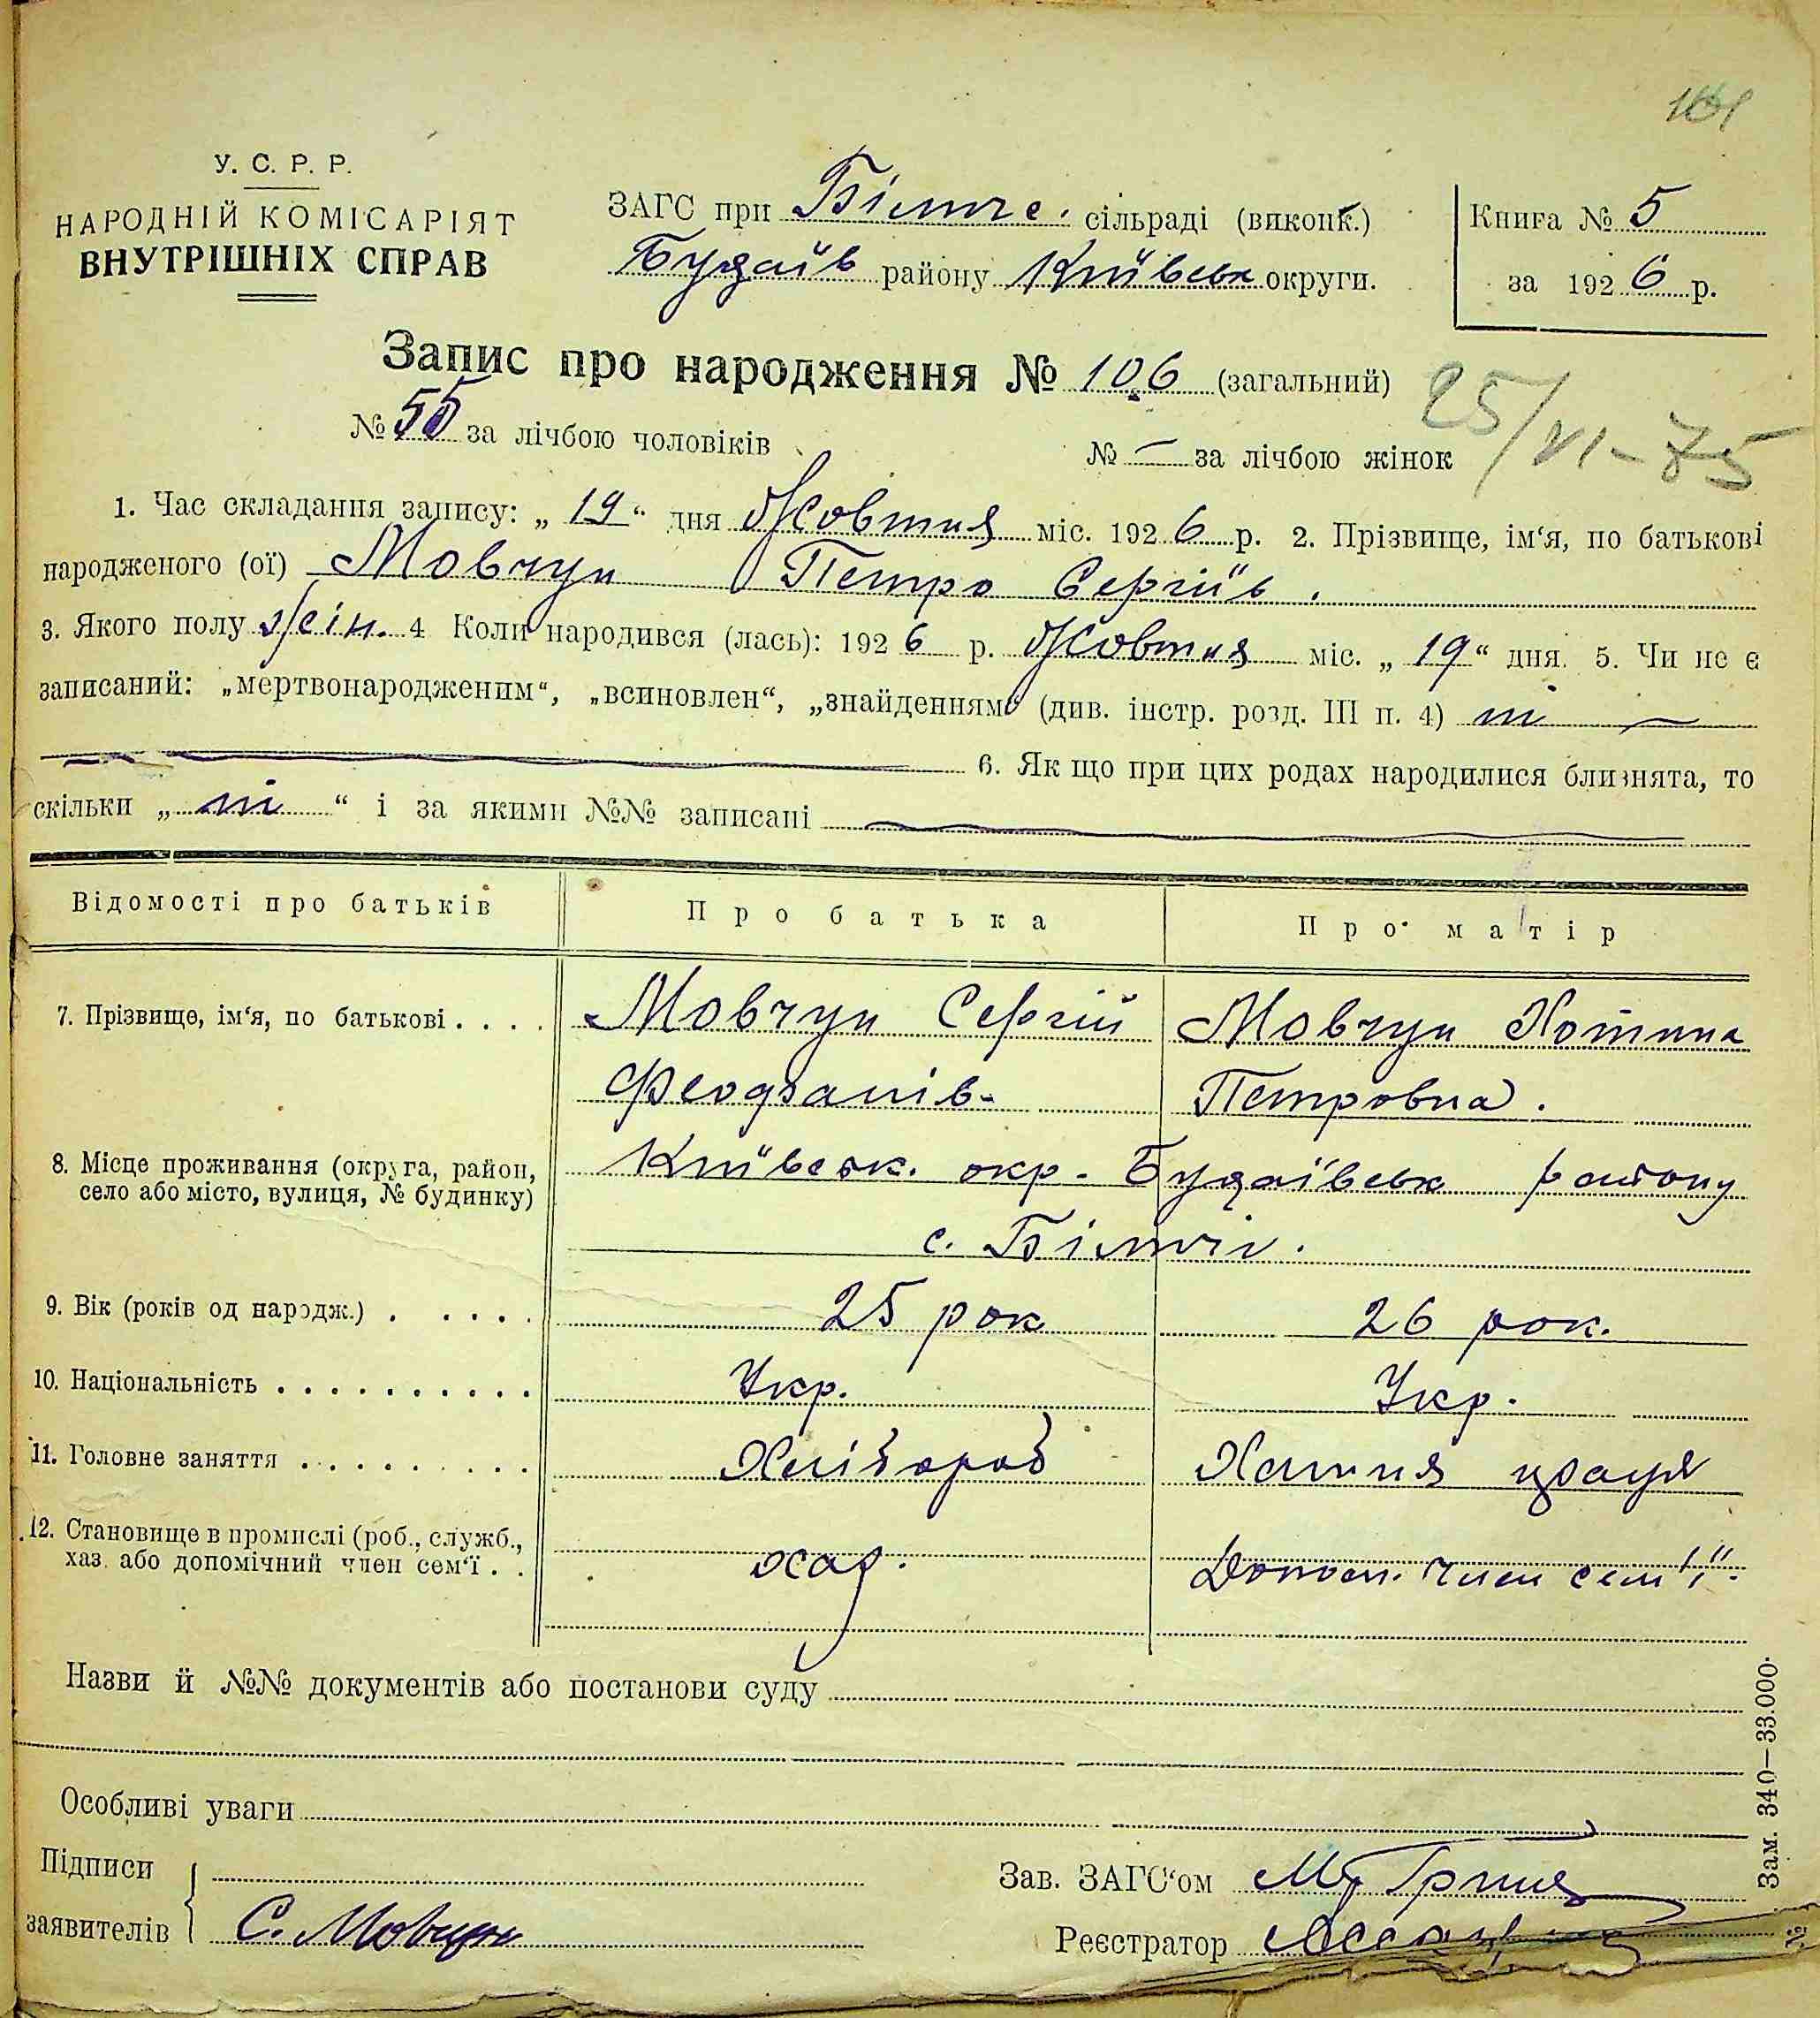 У. С. Р. Р.
НАРОДНІЙ КОМІСАРІЯТ
ВНУТРІШНІХ СПРАВ
ЗАГС при Біличе. сільраді (виконк.)
Будаїв району Київськ округи.
Книга № 5
за 1926 р.
Запис про народження № 106 (загальний)
25/VI-75
№ 55 за лічбою чоловіків № — за лічбою жінок
1. Час складання запису: „19“ дня Жовтня міс. 1926 р. 2. Прізвище, ім‘я, по батькові
народженого (ої) Мовчун Петро Сергіїв.
3. Якого полу жін. 4 Коли народився (лась): 1926 р. Жовтня міс. „19“ дня. 5. Чи не є
записаний: „мертвонародженим“, „всиновлен“, „знайденням“ (див. інстр. розд. III п. 4) ні —
6. Як що при цих родах народилися близнята, то
скільки „ні“ і за якими №№ записані —
Відомості про батьків Про батька Про матір
7. Прізвище, ім‘я, по батькові . . . . Мовчун Сергій Мовчун Хотина
Феофанів- Петровна.
8. Місце проживання (округа, район, село або місто, вулиця, № будинку) Київськ. окр. Будаївськ району
с. Біличі.
9. Вік (років од народж.) . . . . . 25 рок 26 рок.
10. Національність . . . . . . . . . . Укр. Укр.
11. Головне заняття . . . . . . . . . Хлібороб Хатня праця
12. Становище в промислі (роб., служб.,
хаз. або допомічний член сем‘ї . . хаз. Допом. член сем'ї.
Назви й №№ документів або постанови суду
Особливі уваги
Підписи
заявителів С. Мовчун
Зав. ЗАГС‘ом
Реєстратор
Зам. 340—33.000.
№